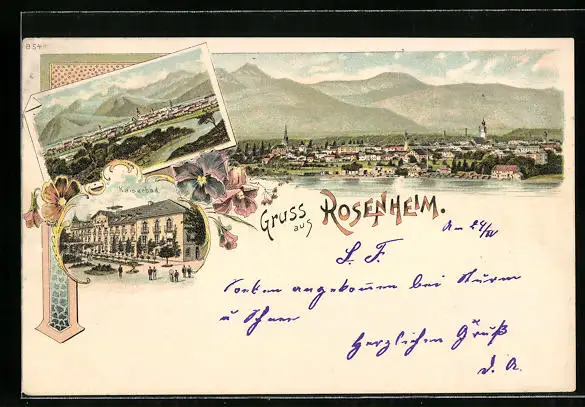 854
Kaiserbad
Gruss aus Rosenheim.
A. 24/IV
L. F.
Soeben angekommen bei Sturm
u Schnee
Herzlichen Gruß
d. A.